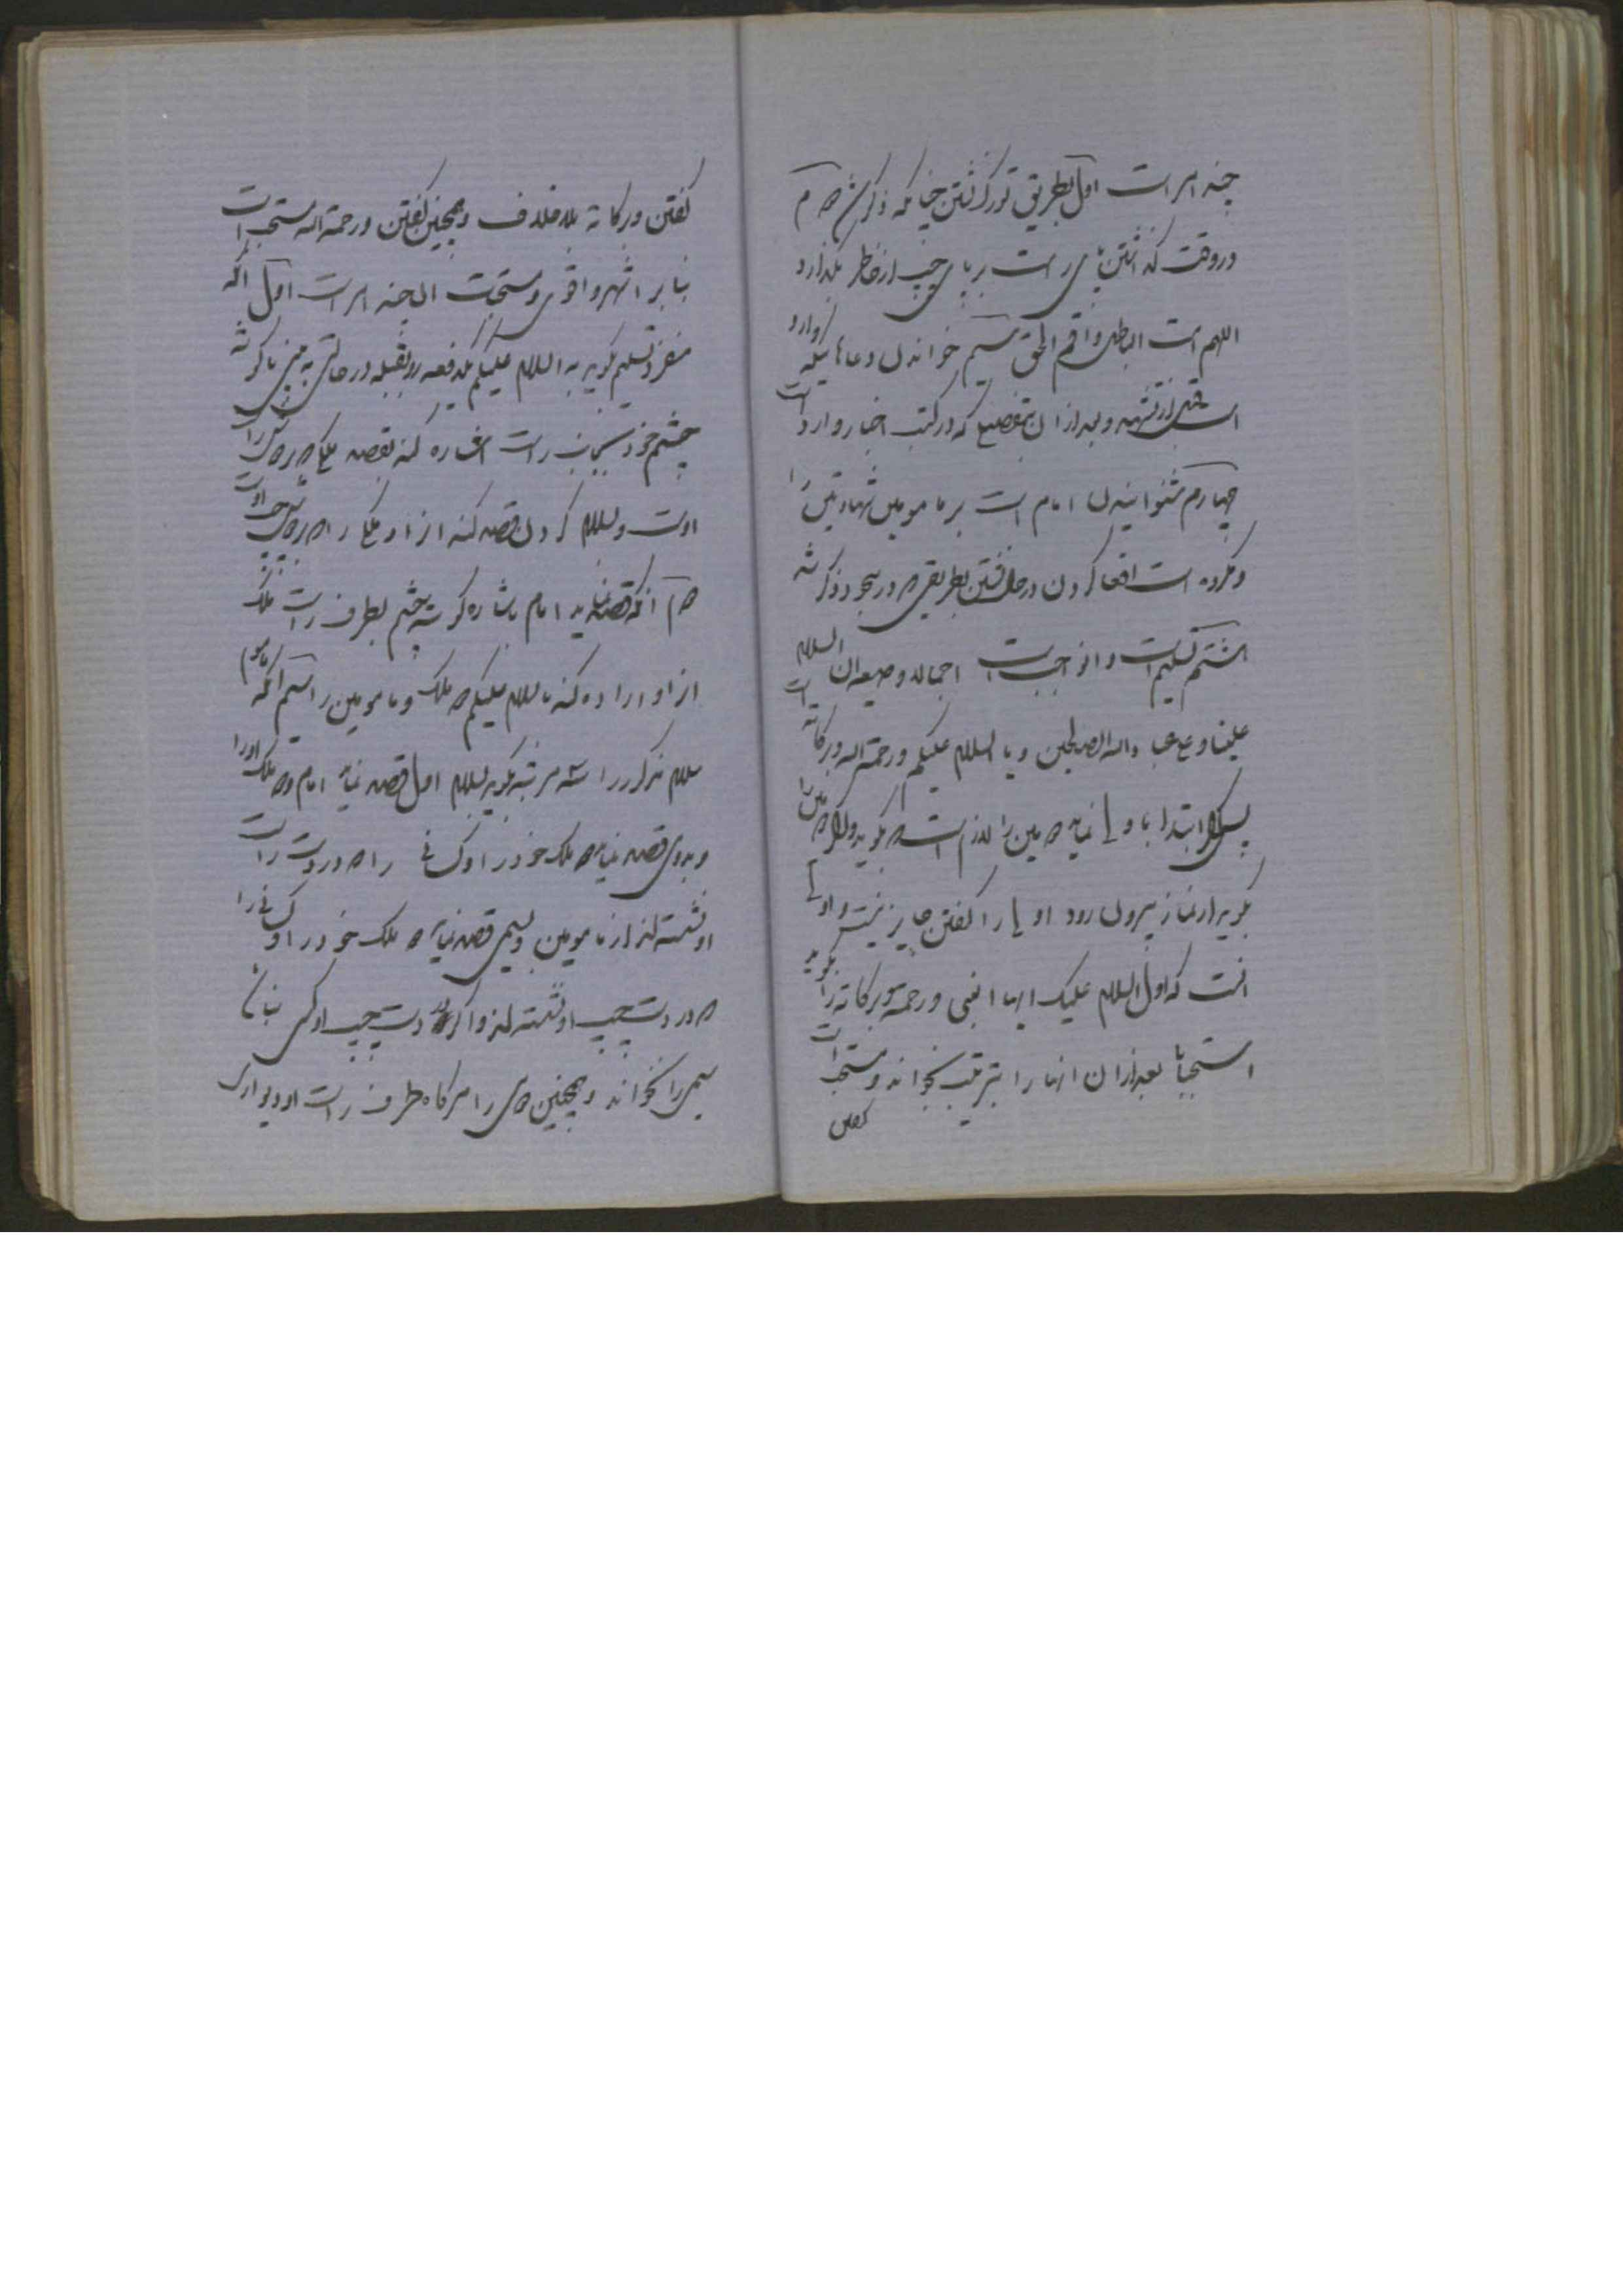 چند امر است اول بطریق تورک نشستن چنانکه ذکر شد دوم
در وقت گذاشتن پای راست بر پای چپ از خاطر بگذارد
اللهم امت الباطل و اقم الحق سیم خواندن دعاهائیکه وارد
است قبل از تشهد و بعد از ان بتفصیلی که در کتب اخبار وارد است
چهارم شنوانیدن امام است بر مامومین شهادتین را
و مکروه است اقعا کردن در حال نشستن بطریقی که در سجود ذکر شد
هشتم تسلیم است و ان واجب است اجمالا و صیغه ان السلام
علینا و علی عباد الله الصالحین و یا السلام علیکم و رحمة الله و برکاته است
پس اگر ابتدا باولی نماید دومین را لازم است که بگوید و اگر دومین را
بگوید از نماز بیرون رود اولی را گفتن جایز نیست و اولی
انست که اول السلام علیک ایها النبی و رحمة الله و برکاته را بگوید
استحبابا بعد از ان انها را بترتیب بخواند و مستحب است
گفتن
گفتن و برکاته بلا خلاف و همچنین گفتن و رحمة الله مستحب است
بنا بر اشهر و اقوی و مستحبات ان چند امر است اول انکه
منفرد تسلیم بگوید به السلام علیکم یکدفعه رو بقبله در حالتی که
چشم خود بجانب راست اشاره کند بقصد ملکی که در طرف راست
اوست و سلام کردن قصد کند از او ملکی را که در طرف چپ اوست
دوم انکه قصد نماید امام باشاره گوشه چشم بطرف راست ملک
از او اراده کند با السلام علیکم دو ملک و مامومین را سیم انکه ماموم
سلام مذکور را سه مرتبه بگوید بسلام اول قصد نماید امام و دو ملک او را
و بدوم قصد نماید دو ملک خود را و کسانی را که در دست راست
او نشسته‌اند از مامومین و بسیم قصد نماید دو ملک خود را و کسانی را
که در دست چپ او نشسته‌اند و اگر در دست چپ او کسی نباشد
سیم را نخواند و همچنین دوم را هر گاه طرف راست او دیواری